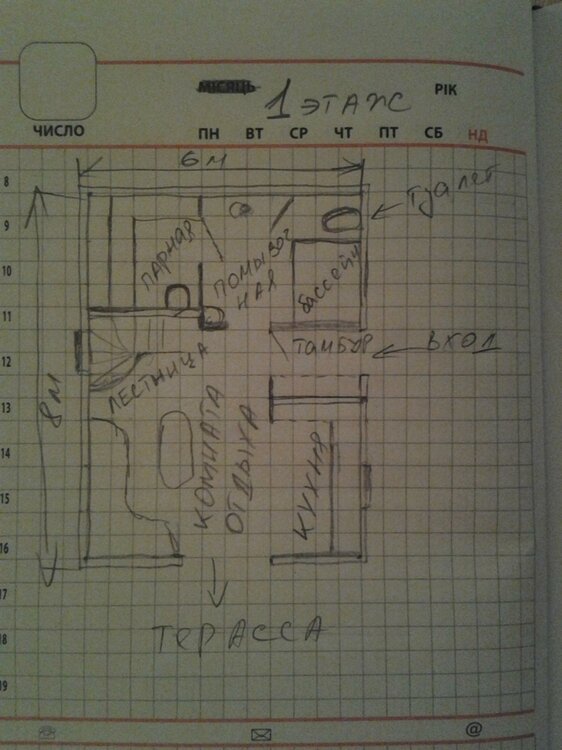 МІСЯЦЬ
РІК
1 ЭТАЖ
ЧИСЛО
ПН ВТ СР ЧТ ПТ СБ НД
6 м
8
туалет
9
ПАРНАЯ
ПОМЫВОЧ
НАЯ
бассейн
10
11
ТАМБУР
ВХОД
12
ЛЕСТНИЦА
8 м
13
КОМНАТА
ОТДЫХА
КУХНЯ
14
15
16
17
ТЕРАССА
18
19
@